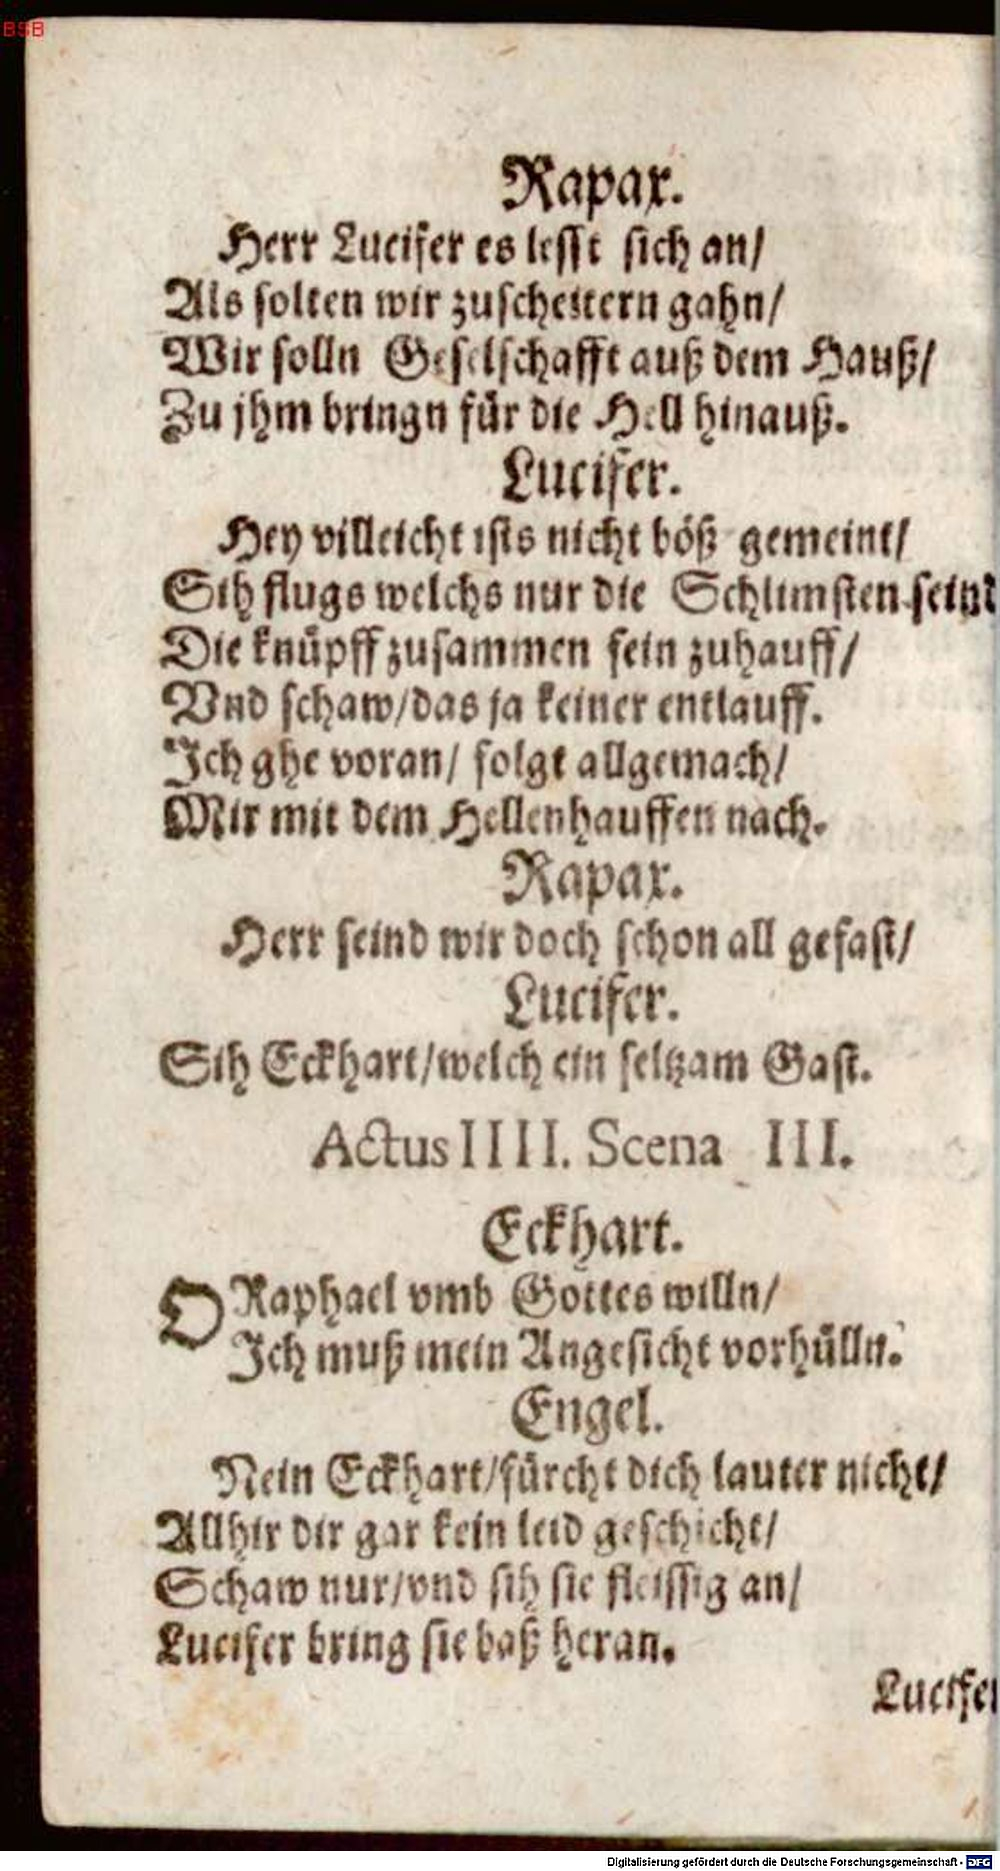 BSB
Rapax.
Herr Lucifer es lesst sich an/
Als solten wir zuscheitern gahn/
Wir solln Geselschafft auß dem Hauß/
Zu jhm bringn für die Hell hinauß.
Lucifer.
Hey villeicht ists nicht böß gemeint/
Sih flugs welchs nur die Schlimsten seind
Die knüpff zusammen fein zuhauff/
Vnd schaw/das ja keiner entlauff.
Ich ghe voran/ folgt allgemach/
Mir mit dem Hellenhauffen nach.
Rapax.
Herr seind wir doch schon all gefast/
Lucifer.
Sih Eckhart/welch ein seltzam Gast.
Actus IIII. Scena III.
Eckhart.
O Raphael vmb Gottes willn/
Ich muß mein Angesicht vorhülln.
Engel.
Nein Eckhart/fürcht dich lauter nicht/
Allhir dir gar kein leid geschicht/
Schaw nur/vnd sih sie fleissig an/
Lucifer bring sie baß heran.
Lucifer
Digitalisierung gefördert durch die Deutsche Forschungsgemeinschaft - DFG